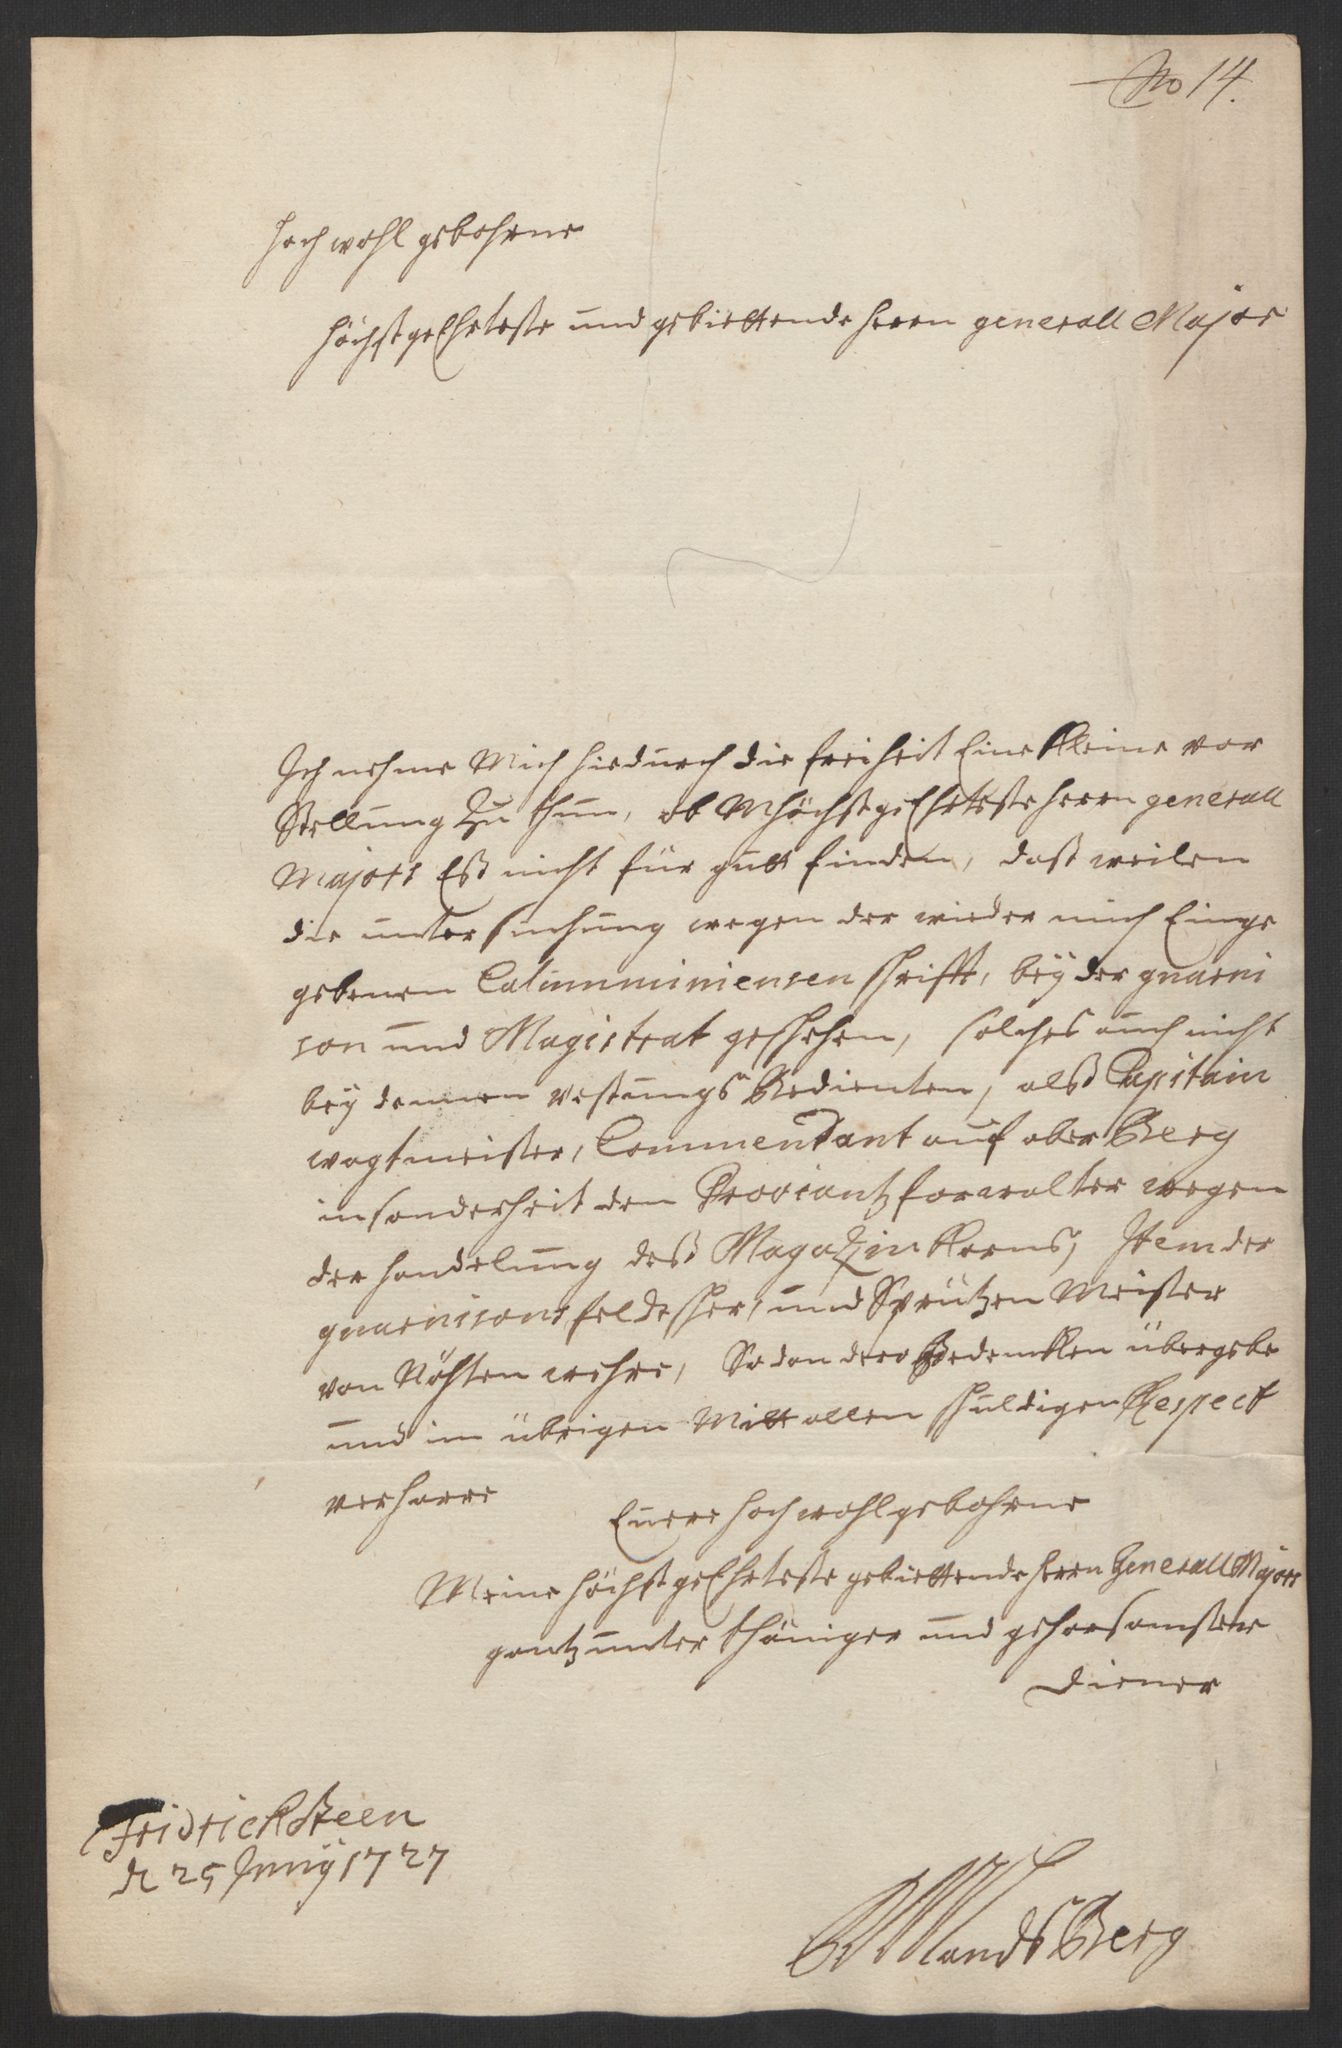 No 14.
Hoch wohl gebohrne
Höchstge Ehrteste und gebiettende Herrn generall Major
Ich nehme Mich hiedurch die freiheit Eine Kleine vor
Stellung Zu thun, ob M höchstge Ehrteste Herrn generall
Majors Eß nicht für gutt finden, daß weilen
die unter suchung wegen der wieder mich Einge
gebenen Calumniniensen schrifft, beÿ der guarni
son und Magistrat geschehen, solches auch nicht
beÿ dennen vestungs Bedienten, alß Capitain
wagtmeister, Commendant auf ober Berg
in sonderheit den Proviantz forwalter wegen
der handelung deß Magazin Korns, Item der
guarnisons feldscher, und Sprützen Meister
von Nöhten wehre, So dan dero Bedencken übergebe
und im übrigen Mitt allen schuldigen Respect
verharre
Euere Hoch wohlgebohrne
Meine höchstge Ehrteste gebiettende Herrn Generall Majors
gantz unter thäniger und gehorsamster
Diener
Fridrichsteen
d 25 Junÿ 1727
LandsBerg